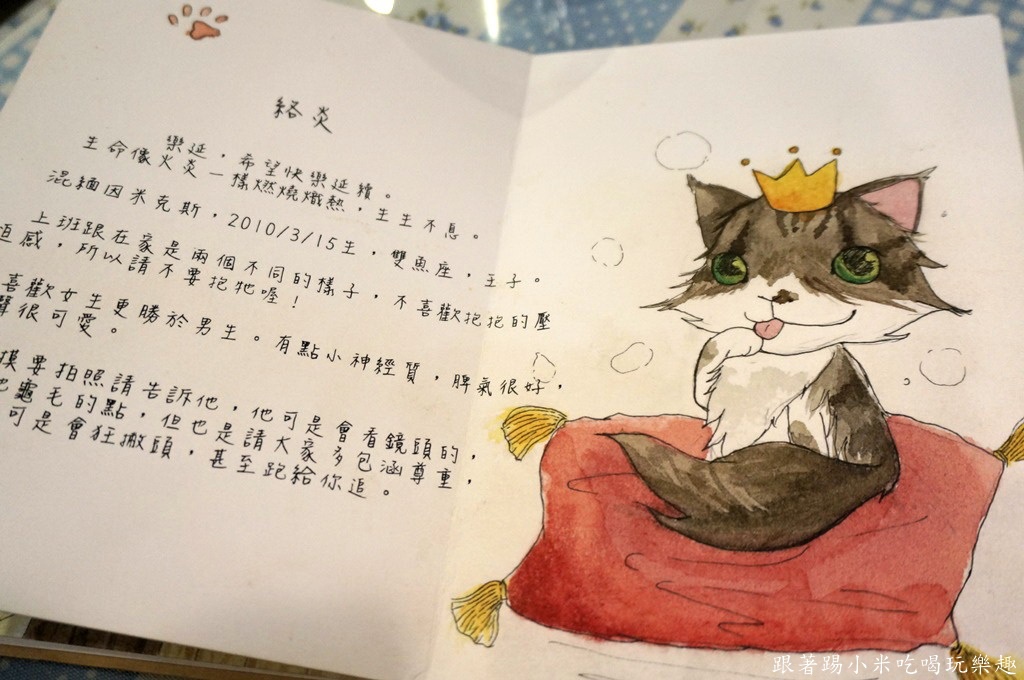 絡炎
樂延，希望快樂延續。
生命像火炎一樣燃燒熾熱，生生不息。
混緬因米克斯，2010/3/15生，雙魚座，王子。
上班跟在家是兩個不同的樣子，不喜歡抱抱的壓
迫感，所以請不要抱牠喔！
喜歡女生更勝於男生。有點小神經質，脾氣很好，
聲很可愛。
摸要拍照請告訴他，他可是會看鏡頭的，
龜毛的點，但也是請大家多包涵尊重，
可是會狂撇頭，甚至跑給你追。
跟著踢小米吃喝玩樂趣